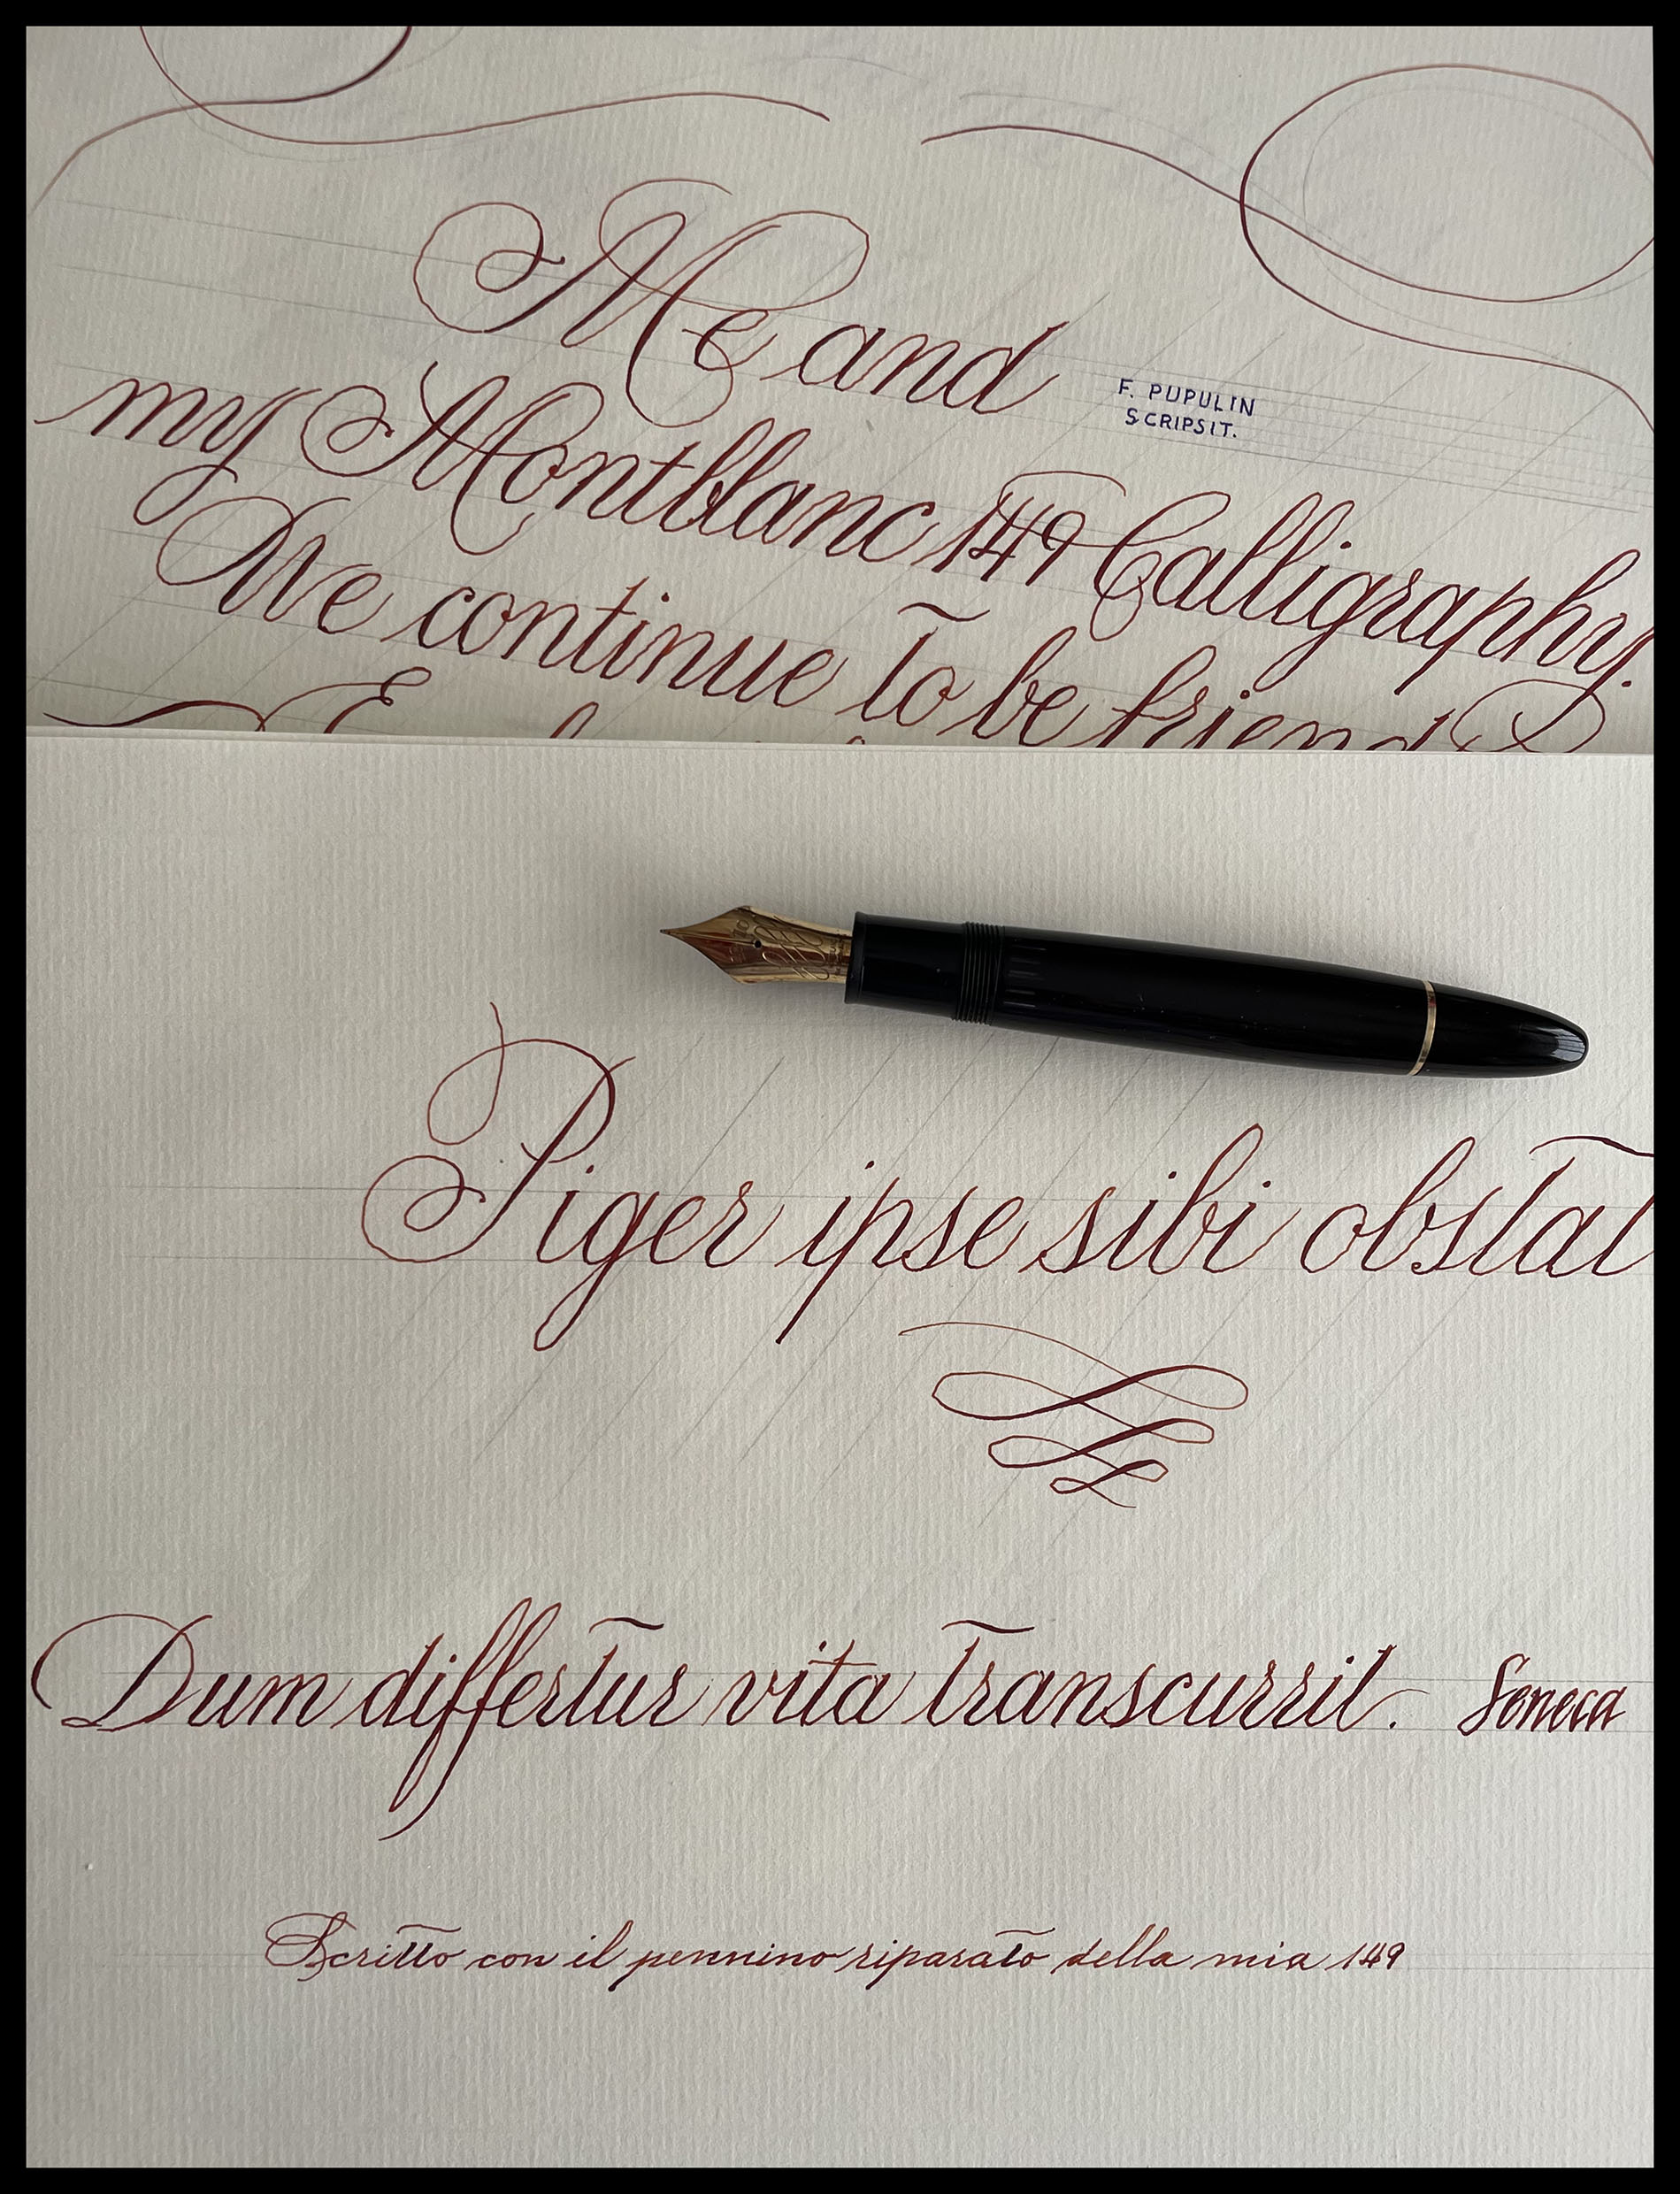 Me and
F. PUPULIN
SCRIPSIT.
my Montblanc 149 Calligraphy.
We continue to be friends
Piger ipse sibi obstat
Dum differtur vita transcurrit. Seneca
Scritto con il pennino riparato della mia 149